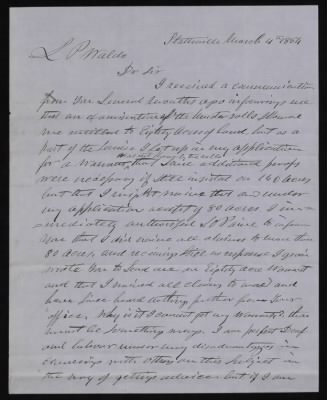 Statesville March 4th 1854
L P Waldo
Dr Sir
I received a communication
from you several months ago informing me
that an examination of the muster rolls showed
me entitled to Eighty Acres of land but as a
part of the service I set up in my application
was not borne by the rolls
for a Warrant, that said additional proofs
were necessary if I still insisted on 160 Acres
but that I might receive that under
my application a certif of 80 acres. I im-
mediately authorised to inform
you that I did waive all claims to more than
80 Acres, and receiving no response I again
wrote you to send me an Eighty Acre Warrant
and that I waived all claims to more and
have since heard nothing further from your
office. Why is it I cannot get my warrant? there
must be something wrong. I am perfect Deaf
and labour under many disadvantages in
conversing with others on this subject in
the way of getting advice. but if I am